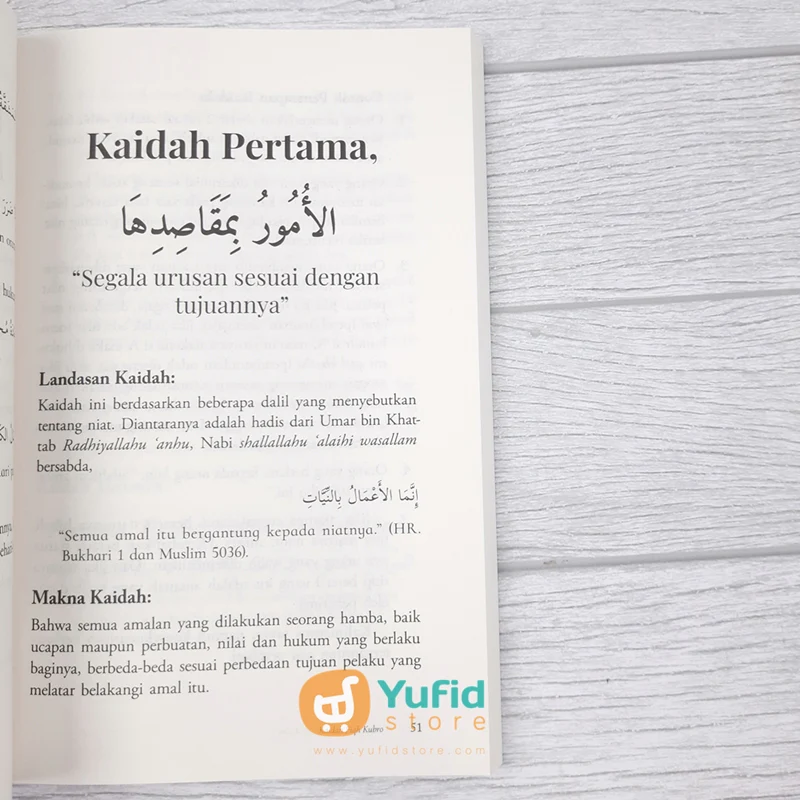 Kaidah Pertama,
الأُمُورُ بِمَقَاصِدِهَا
“Segala urusan sesuai dengan
tujuannya”
Landasan Kaidah:
Kaidah ini berdasarkan beberapa dalil yang menyebutkan
tentang niat. Diantaranya adalah hadis dari Umar bin Khat-
tab Radhiyallahu ‘anhu, Nabi shallallahu ‘alaihi wasallam
bersabda,
إِنَّمَا الأَعْمَالُ بِالنِّيَّاتِ
“Semua amal itu bergantung kepada niatnya.” (HR.
Bukhari 1 dan Muslim 5036).
Makna Kaidah:
Bahwa semua amalan yang dilakukan seorang hamba, baik
ucapan maupun perbuatan, nilai dan hukum yang berlaku
baginya, berbeda-beda sesuai perbedaan tujuan pelaku yang
melatar belakangi amal itu.
Kubro 51
Yufid
store
www.yufidstore.com